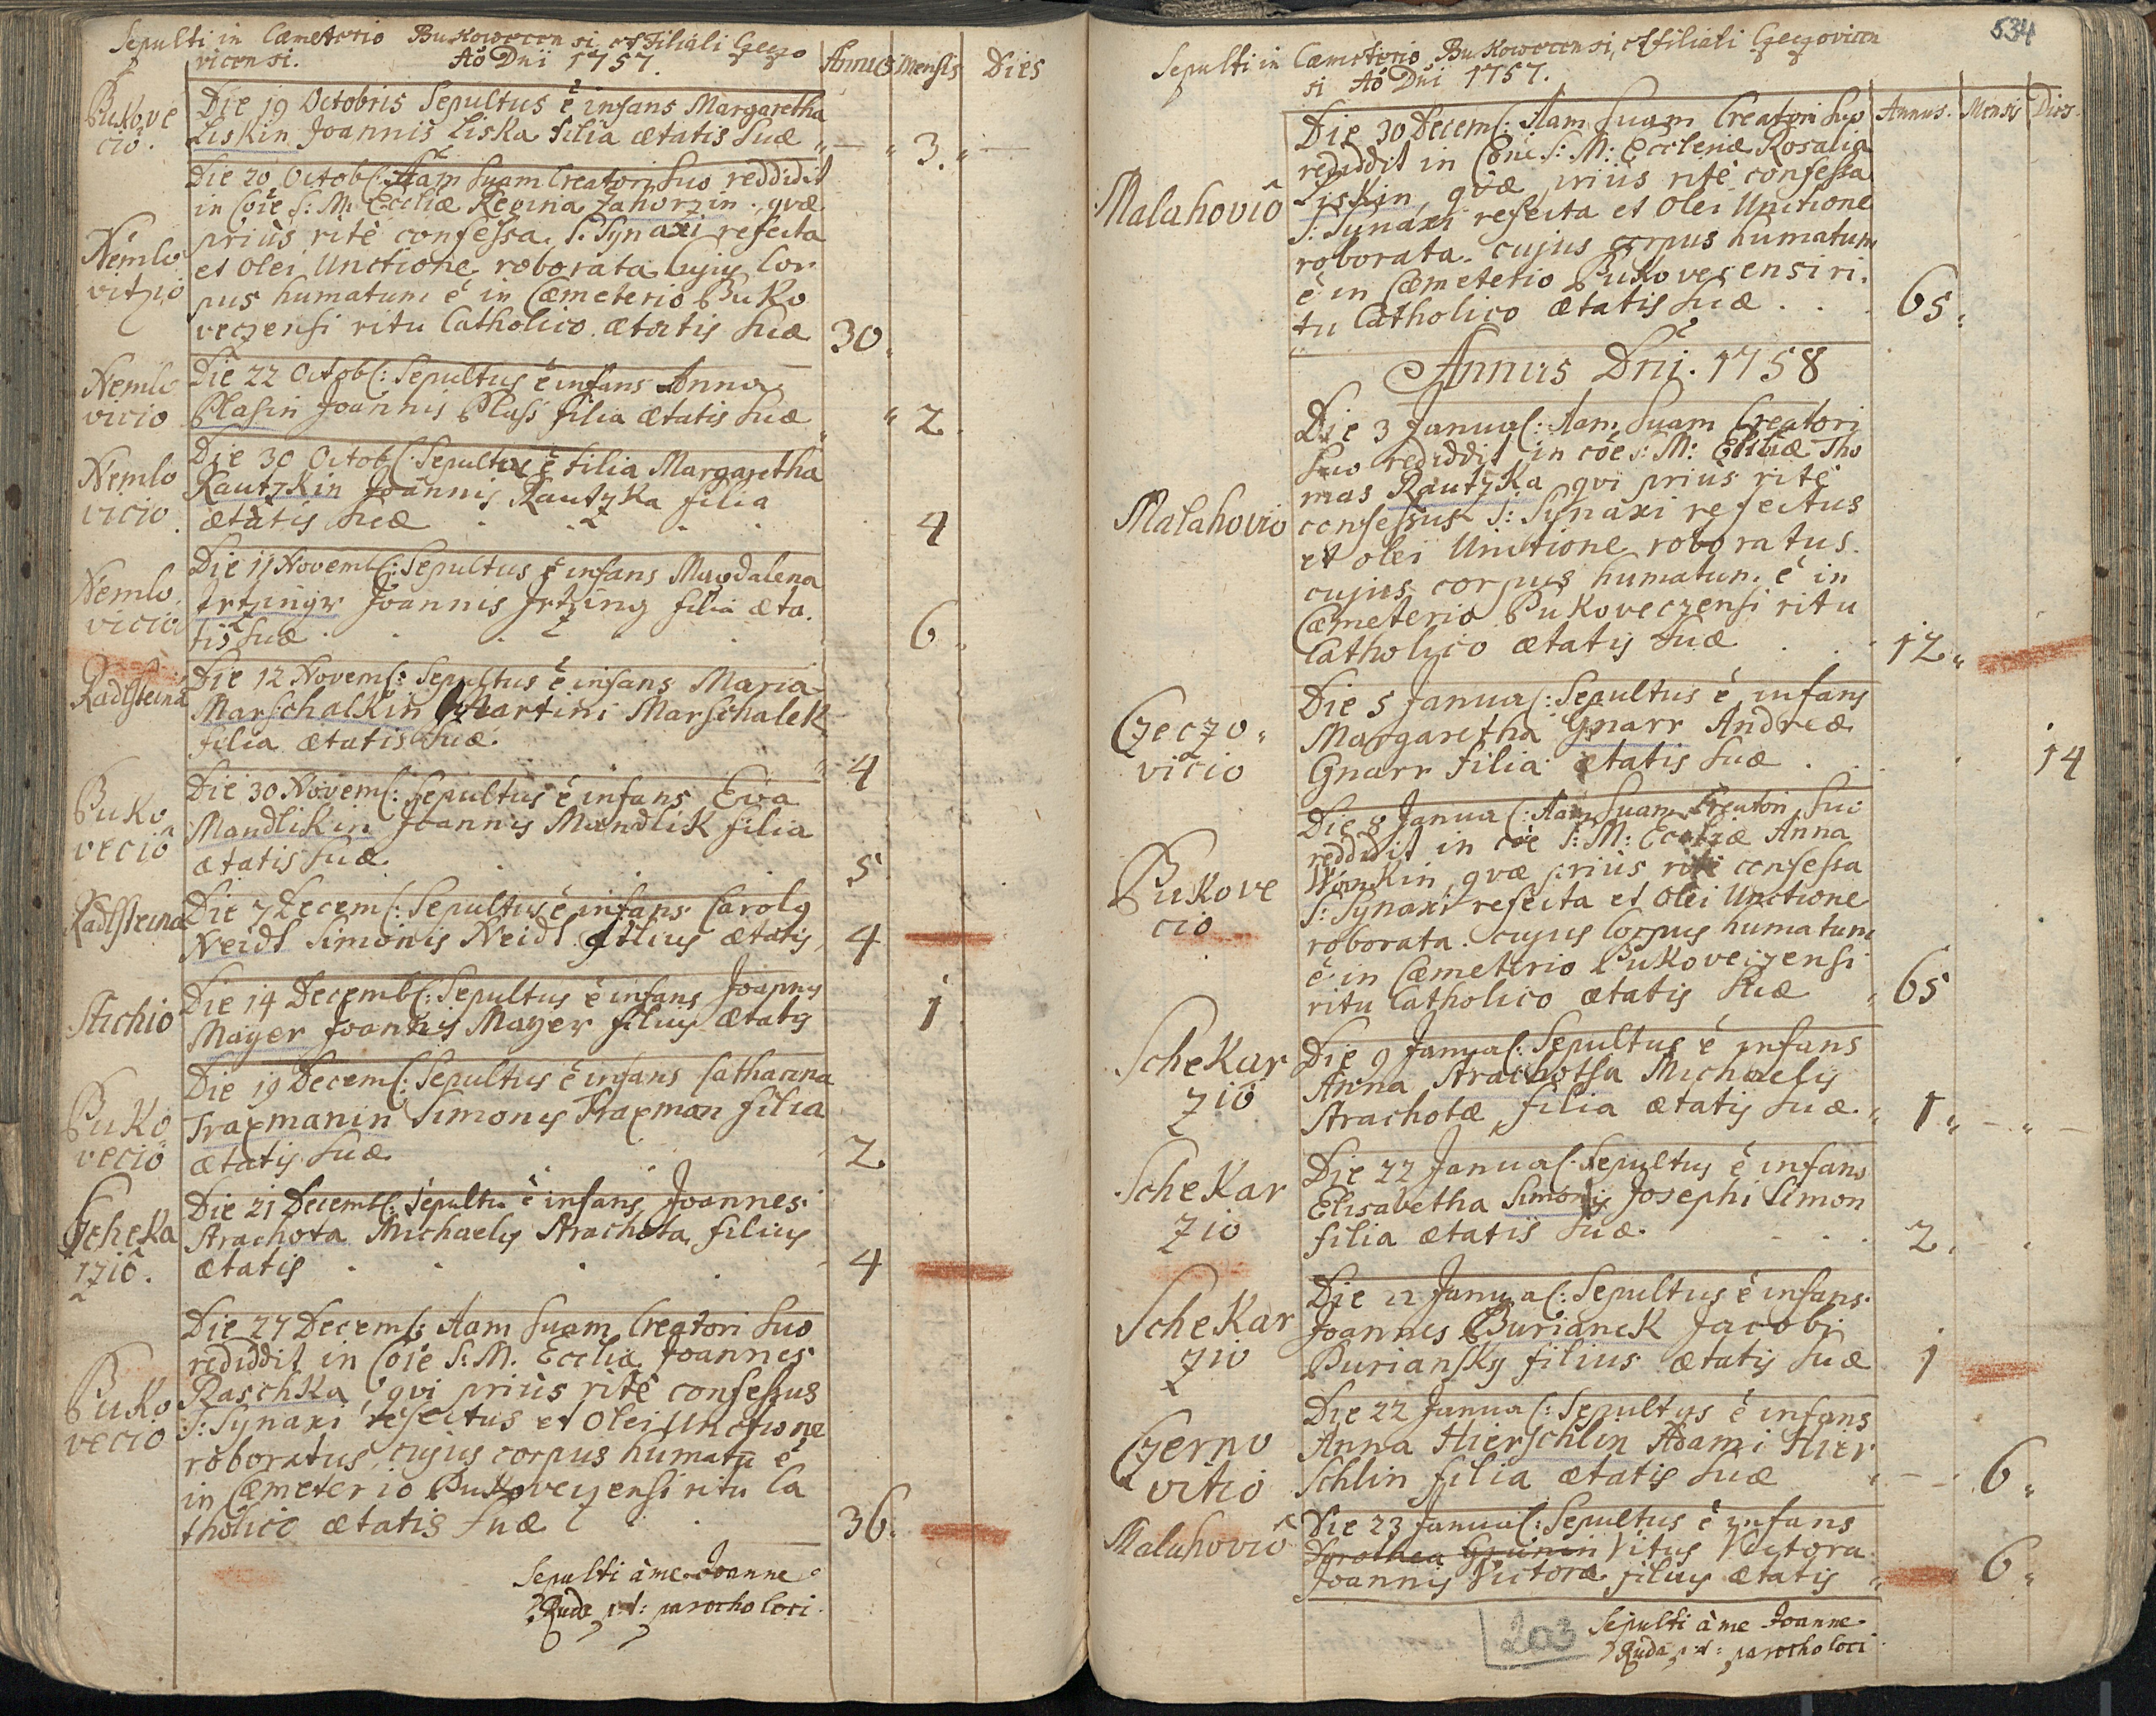 Sepulti in Cæmeterio Bukowecensi, et Filiali Czeczo
vicensi. Aõ Dni 1757.
Annus Mensis Dies
Bukove
ciô.
Die 19 Octobris Sepultus ê infans Margaretha
Liskin Joannis Liska filia ætatis Suæ 3.
Nemlo
vitzio
Die 20 Octobr: Aam Suam Creatori Suo reddidit
in Coîe S: M: Eccliæ Regina Zahorzin. qvæ
priùs ritè confessa. S: Synaxi refecta
et Olei Unctione roborata Cujus Cor
pus humatum ê in Cæmeterio Buko
veczensi ritu Catholico ætatis Suæ 30.
Nemlo
vicio
Die 22 Octobr: Sepultus ê infans Anna
Plasin Joannis Plass filia ætatis Suæ 2
Nemlo
vicio
Die 30 Octobr: Sepultus ê filia Margaretha
Rautzkin Joannis Rautzka filia
ætatis Suæ 4
Nemlo
vicio
Die 11 Novembr: Sepultus ê infans Magdalena
Irtzingr Joannis Irtzing filia æta
tis Suæ 6
Radlsteina
Die 12 Novem: Sepultus ê infans Maria
Marschalkin Martini Marschalek
filia ætatis Suæ. 4
Buko
veciô
Die 30 Novem: Sepultus ê infans Eva
Mandlikin Joannis Mandlik filia
ætatis Suæ. 5
Radlsteina
Die 7 Decem: Sepultus ê infans Carolg
Neidl Simonis Neidl filius ætatis 4
Stichio
Die 14 Decembr: Sepultus ê infans Joannes
Mayer Joannis Mayer filius ætatis 1
Buko
veciô
Die 19 Decem: Sepultus ê infans Catharina
Traxmanin Simonis Traxman filia
ætatis Suæ 2.
Scheka
rziô.
Die 21 Decembr: Sepultus ê infans Joannes
Strachota Michaelis Strachota filius
ætatis 4
Buko
vecio
Die 27 Decem: Aam Suam Creatori Suo
rediddit in Coîe S: M. Eccliæ Joannes
Raschka qvi priùs ritè confessus
S: Synaxi refectus et Olei Unctione
roboratus, cujus corpus humatũ ê
in Cæmeterio Bukoveczensi ritu Ca
tholico ætatis Suæ 36.
Sepulti à me Joanne
Ruda p: t: parocho loci.
534
Sepulti in Cæmeterio Bukowecensi, et filiali Czeczovicen
si Aõ Dni 1757.
Annus. Mensis Dies.
Malahoviô
Die 30 Decem: Aam Suam Creatori Suo
rediddit in Cone S: M: Eccleniæ Rosalia
Liskin, qvæ priùs ritè confessa
S: Synaxi refecta et Olei Unctione
roborata. cujus corpus humatum
ê in Cæmeterio Bukovecensi ri.
tu Catholico ætatis Suæ 65.
Annus Dni. 1758
Malahovio
Die 3 Januar: Aam Suam Creatori
Suo rediddit in côe S: M: Eccliæ Tho
mas Rautzka qvi priùs ritè
confessus S: Synaxi refectus
et olei Unctione roboratus.
cujus corpus humatum ê in
Cæmeterio Bukoveczensi ritu
Catholico ætatis Suæ 12
Czeczo.
vicio
Die 5 Januar: Sepultus ê infans
Margaretha Gnarr Andreæ
Gnarr filia ætatis Suæ 14
Bukove
ciô
Die 8 Januar: Aam Suam Creatori Suo
reddidit in côe S: M: Eccliæ Anna
qvæ priùs ritè confessa
S: Synaxi refecta et Olei Unctione
roborata. cujus Corpus humatum
ê in Cæmeterio Bukoveczensi
ritu Catholico ætatis Suæ 65
Schekar
ziô
Die 9 Januar: Sepultus ê infans
Anna Strachotsa Michaelis
Strachotæ filia ætatis Suæ. 1
Schekar
zio
Die 22 Januar: Sepultus ê infans
Elisabetha Simonis Josephi Simon
filia ætatis Suæ. 2.
Schekar
zio
Die 22 Januar: Sepultus ê infans
Joannes Burianek Jacobi
Buriansky filius ætatis Suæ 1
Czerno
vitio
Die 22 Januar: Sepultus ê infans
Anna Hierschlin Adami Hier
schlin filia ætatis Suæ 6
Malahoviô
Die 23 Januar: Sepultus ê infans
Dorothea Grünin Vitus Victora
Joannis Victoræ filius ætatis 6
203
Sepulti à me Joanne
Ruda p: t: parocho loci